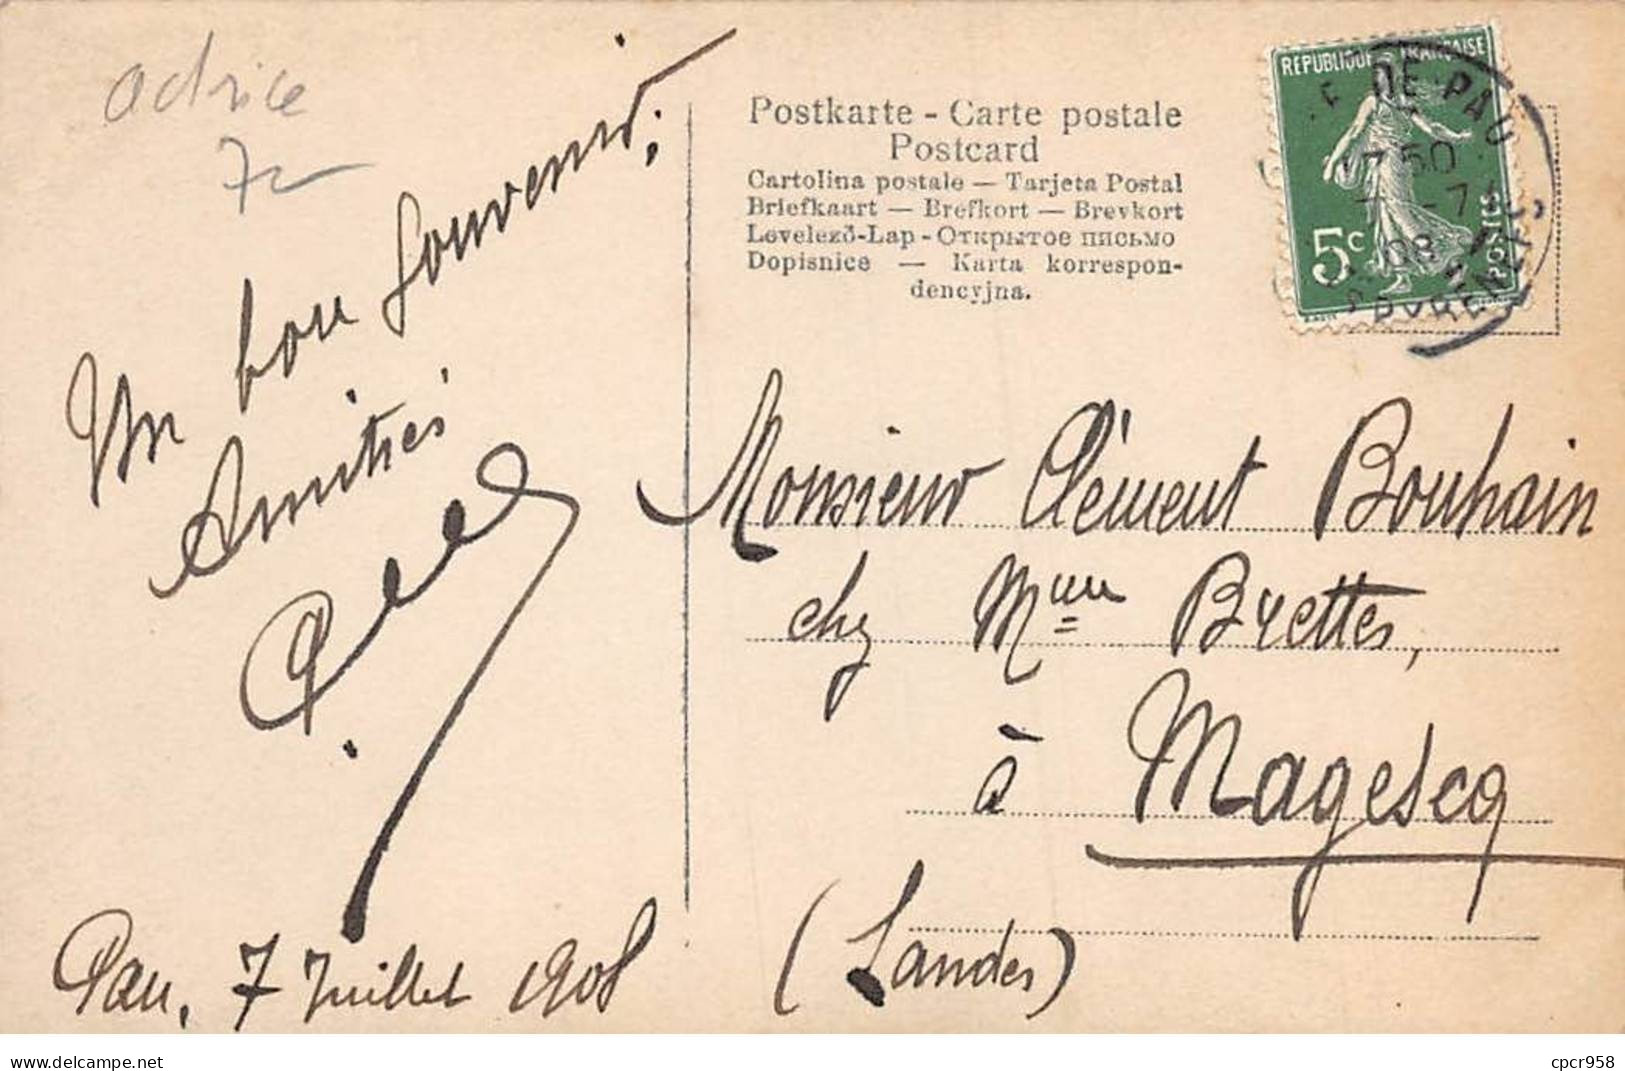 adrice
7
Un bon souvenir;
Amitiés
Pau, 7 Juillet 1908
Postkarte - Carte postale
Postcard
Cartolina postale — Tarjeta Postal
Briefkaart — Brefkort — Brevkort
Levelező-Lap - Открытое письмо
Dopisnice — Karta korrespon-
dencyjna.
REPUBLIQUE FRANÇAISE
DE PAU
17 50
-7
08
5c
POSTES
PYRENEES
Monsieur Clément Bouhain
chez Mme Brettes,
à Magescq
(Landes)
delcampe.net
cpcr958